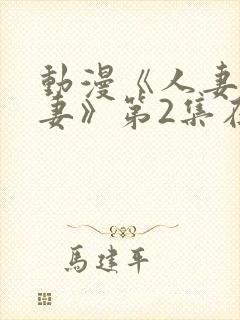 動漫《人妻
妻》第2集在
馬建平